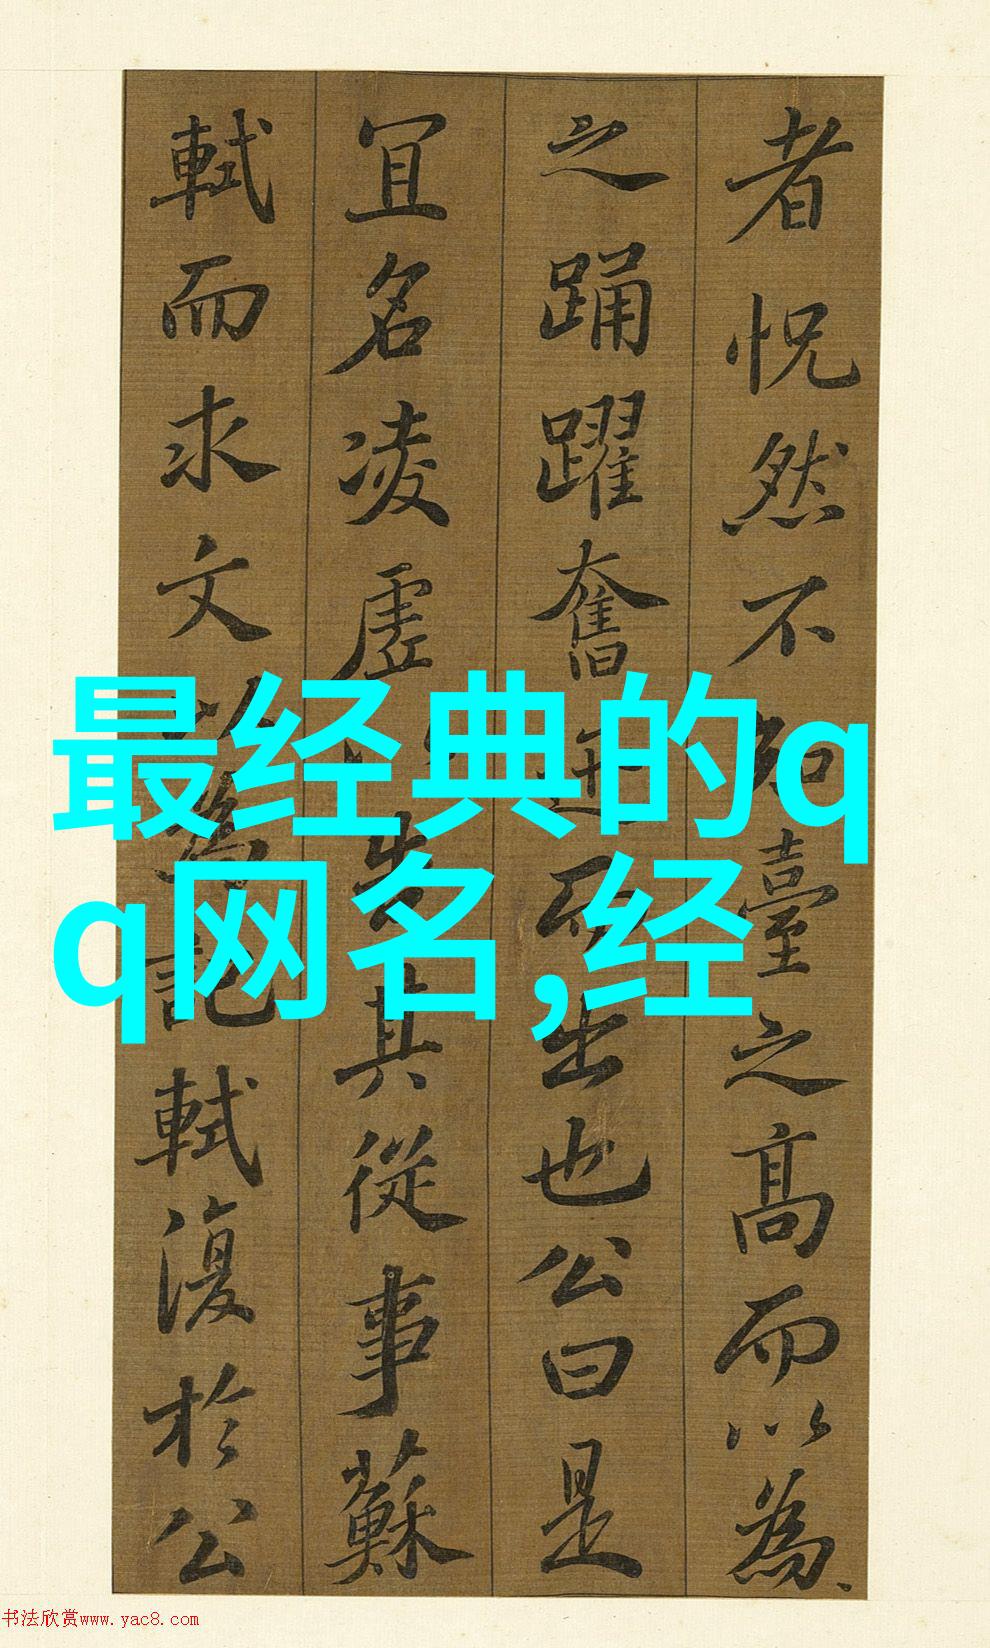 者怳然不知臺之高而以為
之踊躍奮迅而出也公曰是
宜名凌虛以告其從事蘇
軾而求文以為記軾復於公
最经典的q
q网名,经
书法欣赏www.yac8.com